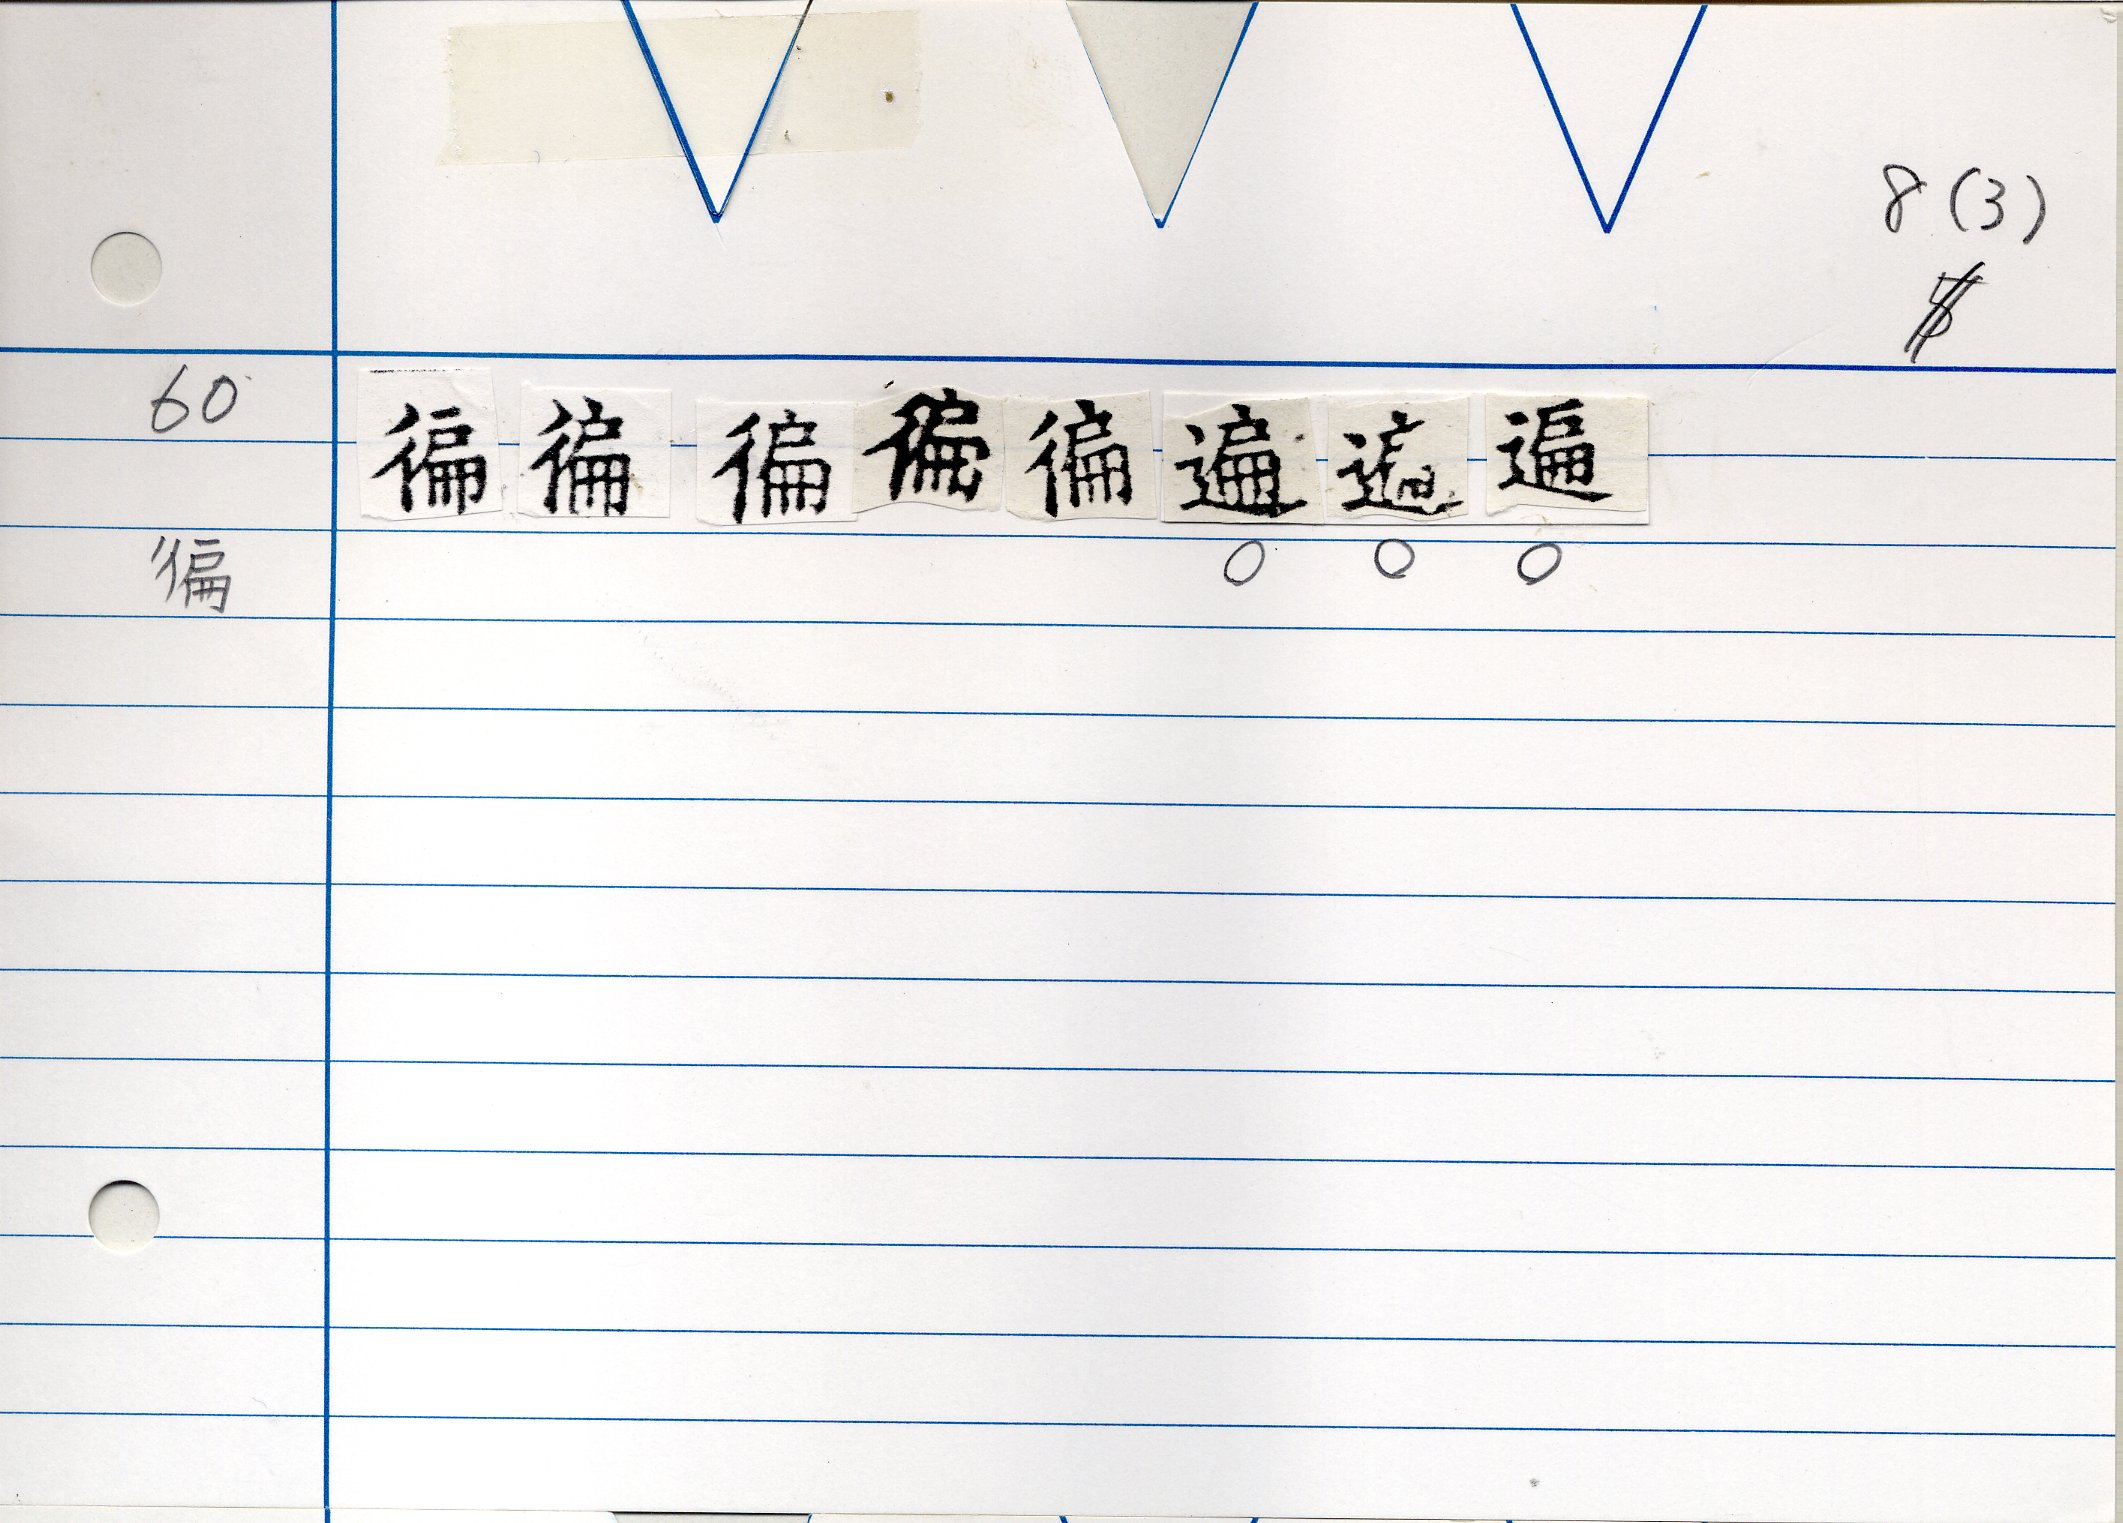 8(3)
60
徧徧徧徧徧遍遍遍
徧
○ ○ ○